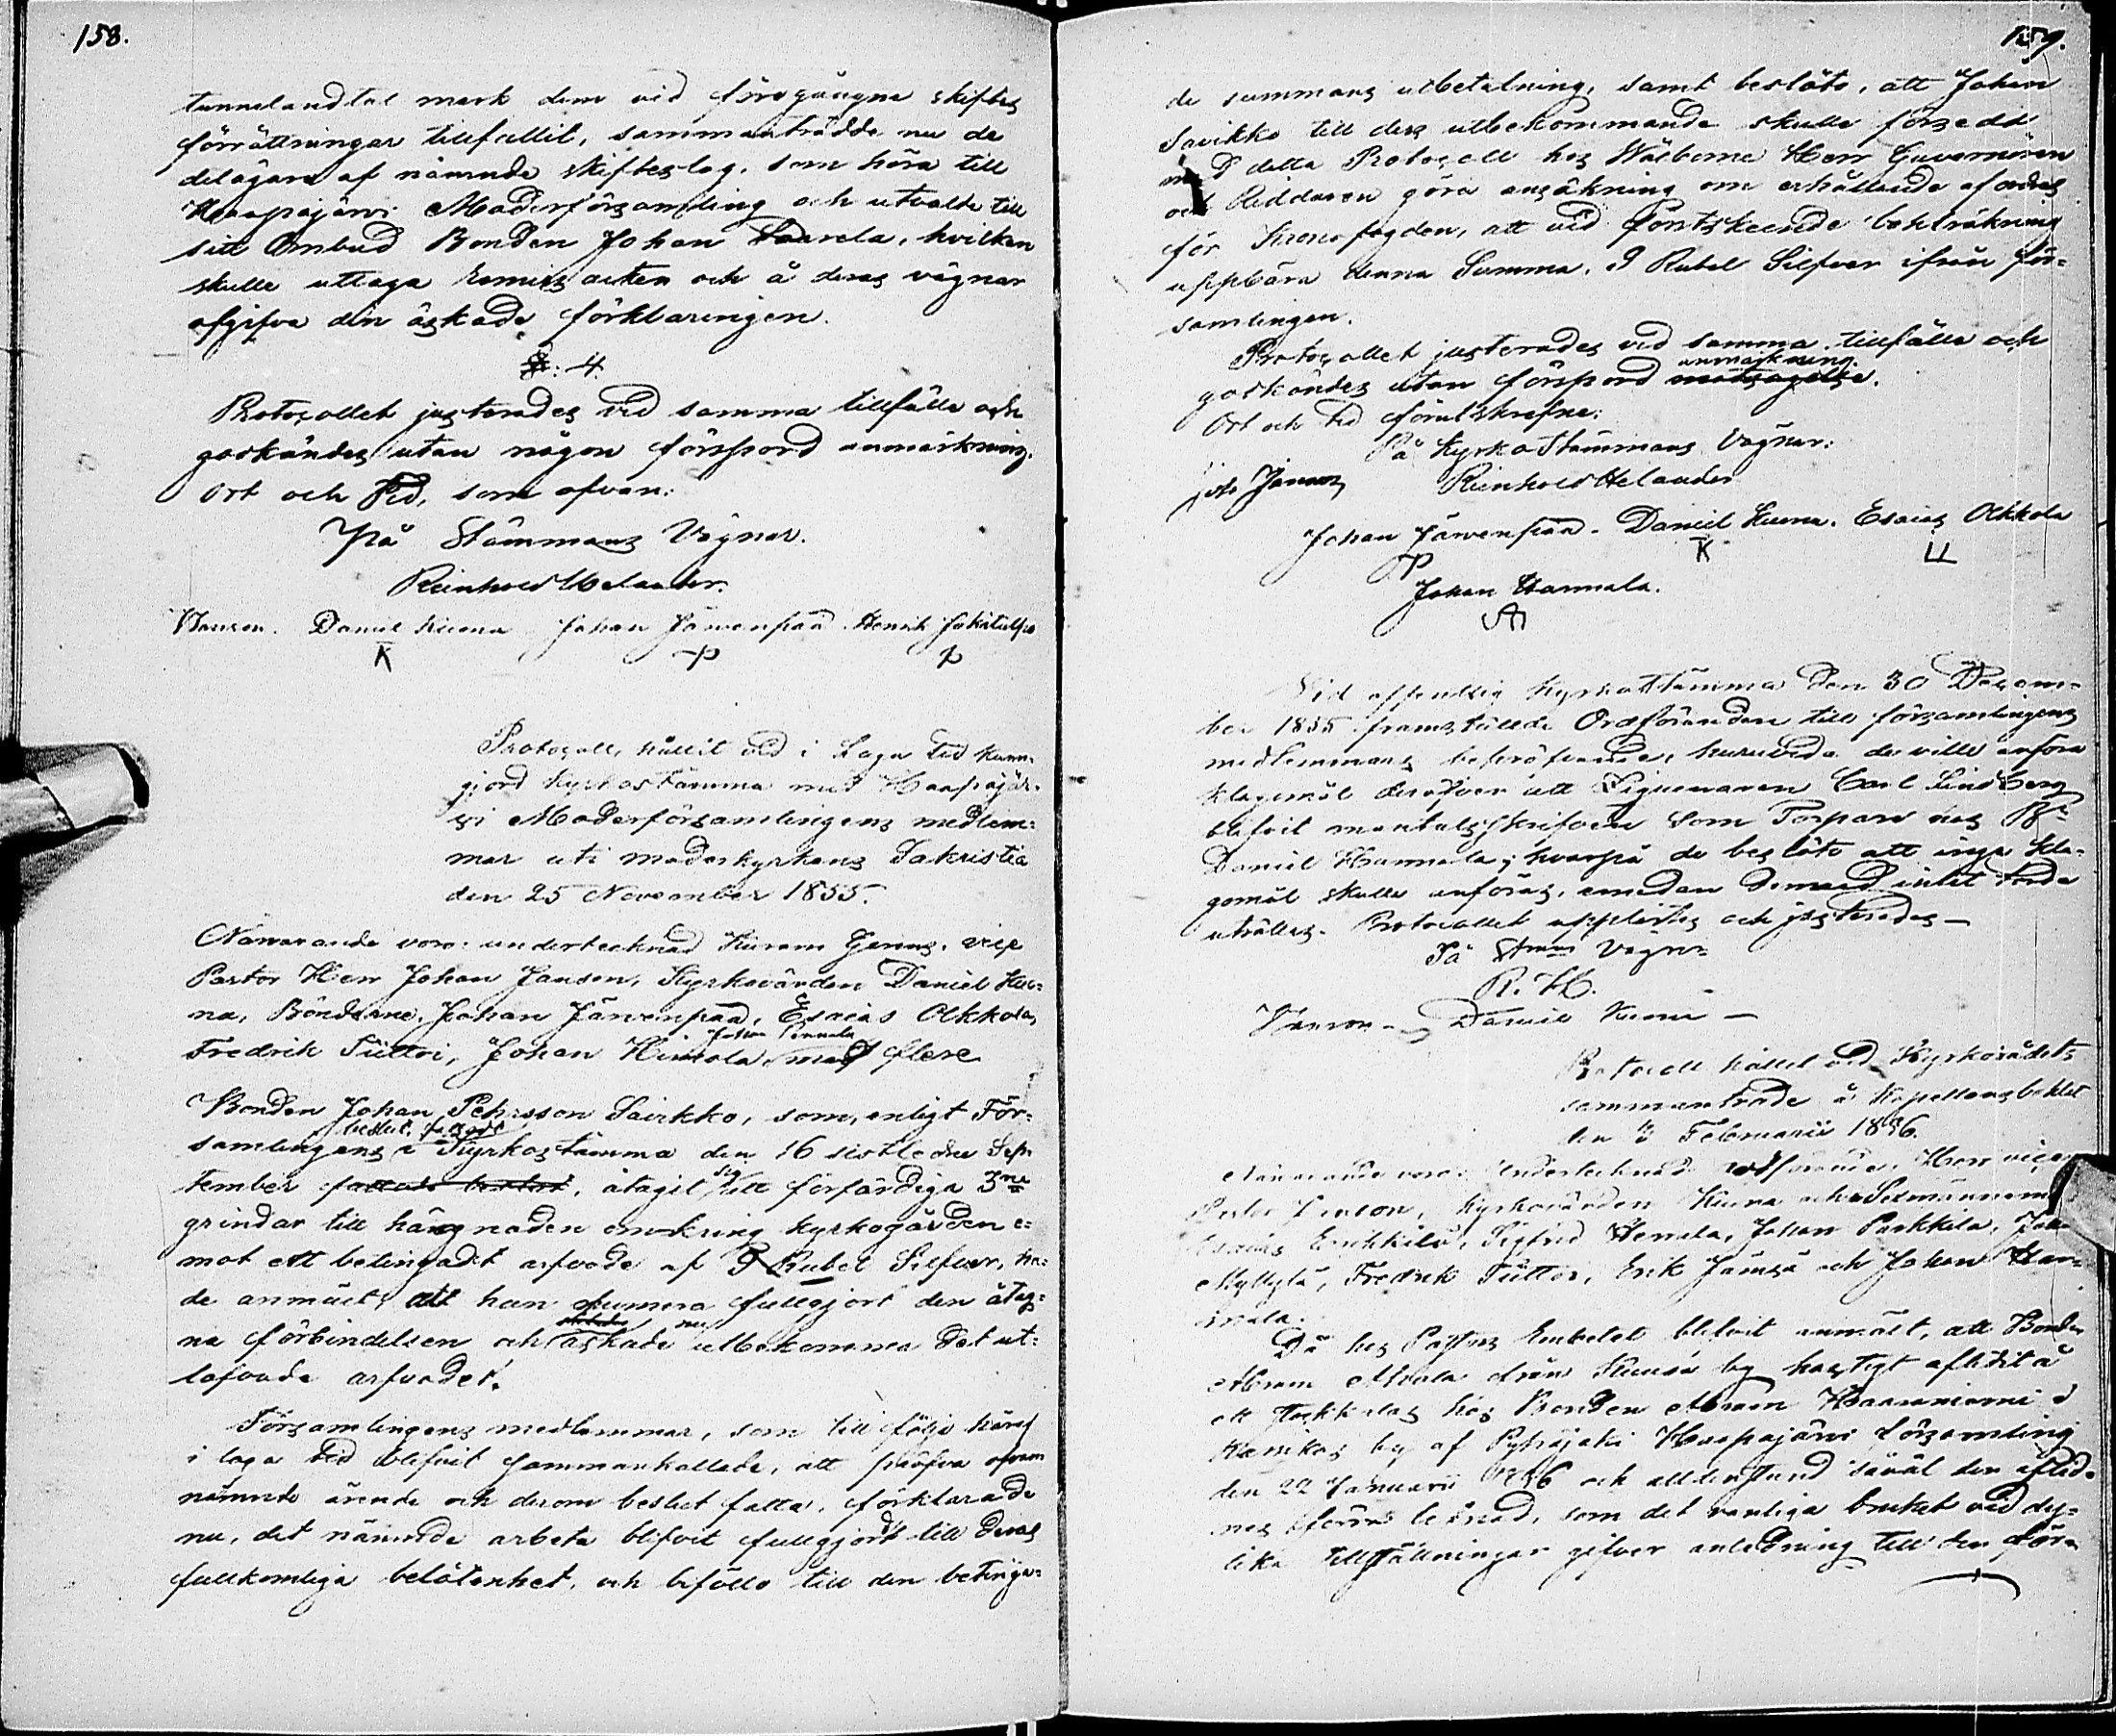 158.
tunnelandtal mark dem vid föregångne skiftes
förrättningar tillfallit, sammanträdde nu de
delägare af nämnde skifteslag, som höra till
Haapajärvi Moderförsamling och utvalde till
sitt Ombud Bonden Johan Saarela, hvilken
skulle uttaga Remiss acten och å deras vägnar
afgifva den äskade förklaringen.
§: 4.
Protocollet justerades vid samma tillfälle och
godkändes utan någon förspord anmärkning.
Ort och Tid, som ofvan:
På Stämmans Vägnar.
Reinhold Helander.
Jansen. Daniel Kuona Johan Järvenpää Henrik
K P
Protocoll, hållit vid i Laga tid kun-
gjord Kyrkostämma med Haapajär-
vi Moderförsamlingens medlem-
mar uti moderkyrkans Sakristia
den 25 November 1855.
Närvarande voro: undertecknad Curam Gerens, vice
Pastor Herr Johan Jansen, Kyrkovärden Daniel Kuo-
na, Bönderne, Johan Järvenpää, Esaias Olkkola,
Fredrik Tuttoi, Johan Himola, med flere
Bonden Johan Pehrsson Savikko, som, enligt För-
beslut, fattadt
samlingens i Kyrkostämma den 16 sistledne Sep-
tember fattade beslut, åtagit sig att förfärdiga 3ne
grindar till hägnaden omkring kyrkogården e-
mot ett betingadt arfvode af 9 Rubel Silfver, ha-
de anmält, att han numera fullgjort den åtag-
na förbindelsen och äskade nu utbekomma det ut-
lofvade arfvodet.
Församlingens medlemmar, som till följe häraf
i laga tid blifvit sammankallade, att pröfva ofvan
nämnde ärende och derom beslut fatta, förklarade
nu, det nämnde arbete blifvit fullgjordt till deras
fullkomliga belåtenhet, och biföllo till den betinga-
159.
de summans utbetalning, samt beslöto, att Johan
Savikko till dess utbekommande skulle försedd
med detta Protocoll hos Wälborne Herr Guvernören
och Riddaren göra ansökning om erhållande af ordres
för Kronofogden, att vid skeende
uppbära denna Summa, 9 Rubel Silfver ifrån för-
samlingen.
Protocollet justerades vid samma tillfälle och
anmärkning.
godkändes utan förspord motsägelse.
Ort och tid förutskrefne:
På Kyrko Stämmans Vägnar:
Reinhold Helander
Johan Järvenpää. Daniel Kuona. Esaias Olkkola
P K
Johan Hannula.
Vid offentlig Kyrkostämma den 30 Decem-
ber 1855 framställde Ordföranden till församlingens
medlemmars bepröfvande, huruvida de ville anföra
klagomål deröfver att Ligneuraren Carl Lindberg
blifvit mantalsskrifven som Torpare hos Bn
Daniel Hannula; hvarpå de beslöto att inga kla-
gomål skulle anföras, emedan dermed intet torde
uträttas. Protocollet upplästes och justerades —
På Stmns Vägnr
R. H.
Jansen — Daniel Kuona —
Protocoll hållet vid Kyrkorådets
sammanträde å Kapellansbohlet
den 3 Februarii 1856.
Närvarande voro: Undertecknad ordförande, Herr vice
Pastor Jansen, Kyrkovärden Kuona och Sexmännerne
Esaias Erkkilä, Sigfrid Venala, Johan Parkkila, Johan
Myllylä, Fredrik Tuttoi, Erik Jämsä och Johan Han-
nula.
Då hos Pastors Embetet blifvit anmält, att Bonden
Abram från Kuusa by hastigt aflidit å
ett hos Bonden Abram Haaraniemi i
by af Pyhäjoki Haapajärvi församling
den 22 Januarii 1856 och alldenstund såväl den aflid-
nes förra lefnad, som det vanliga bruket vid dy-
lika tillställningar gifver anledning till den för-